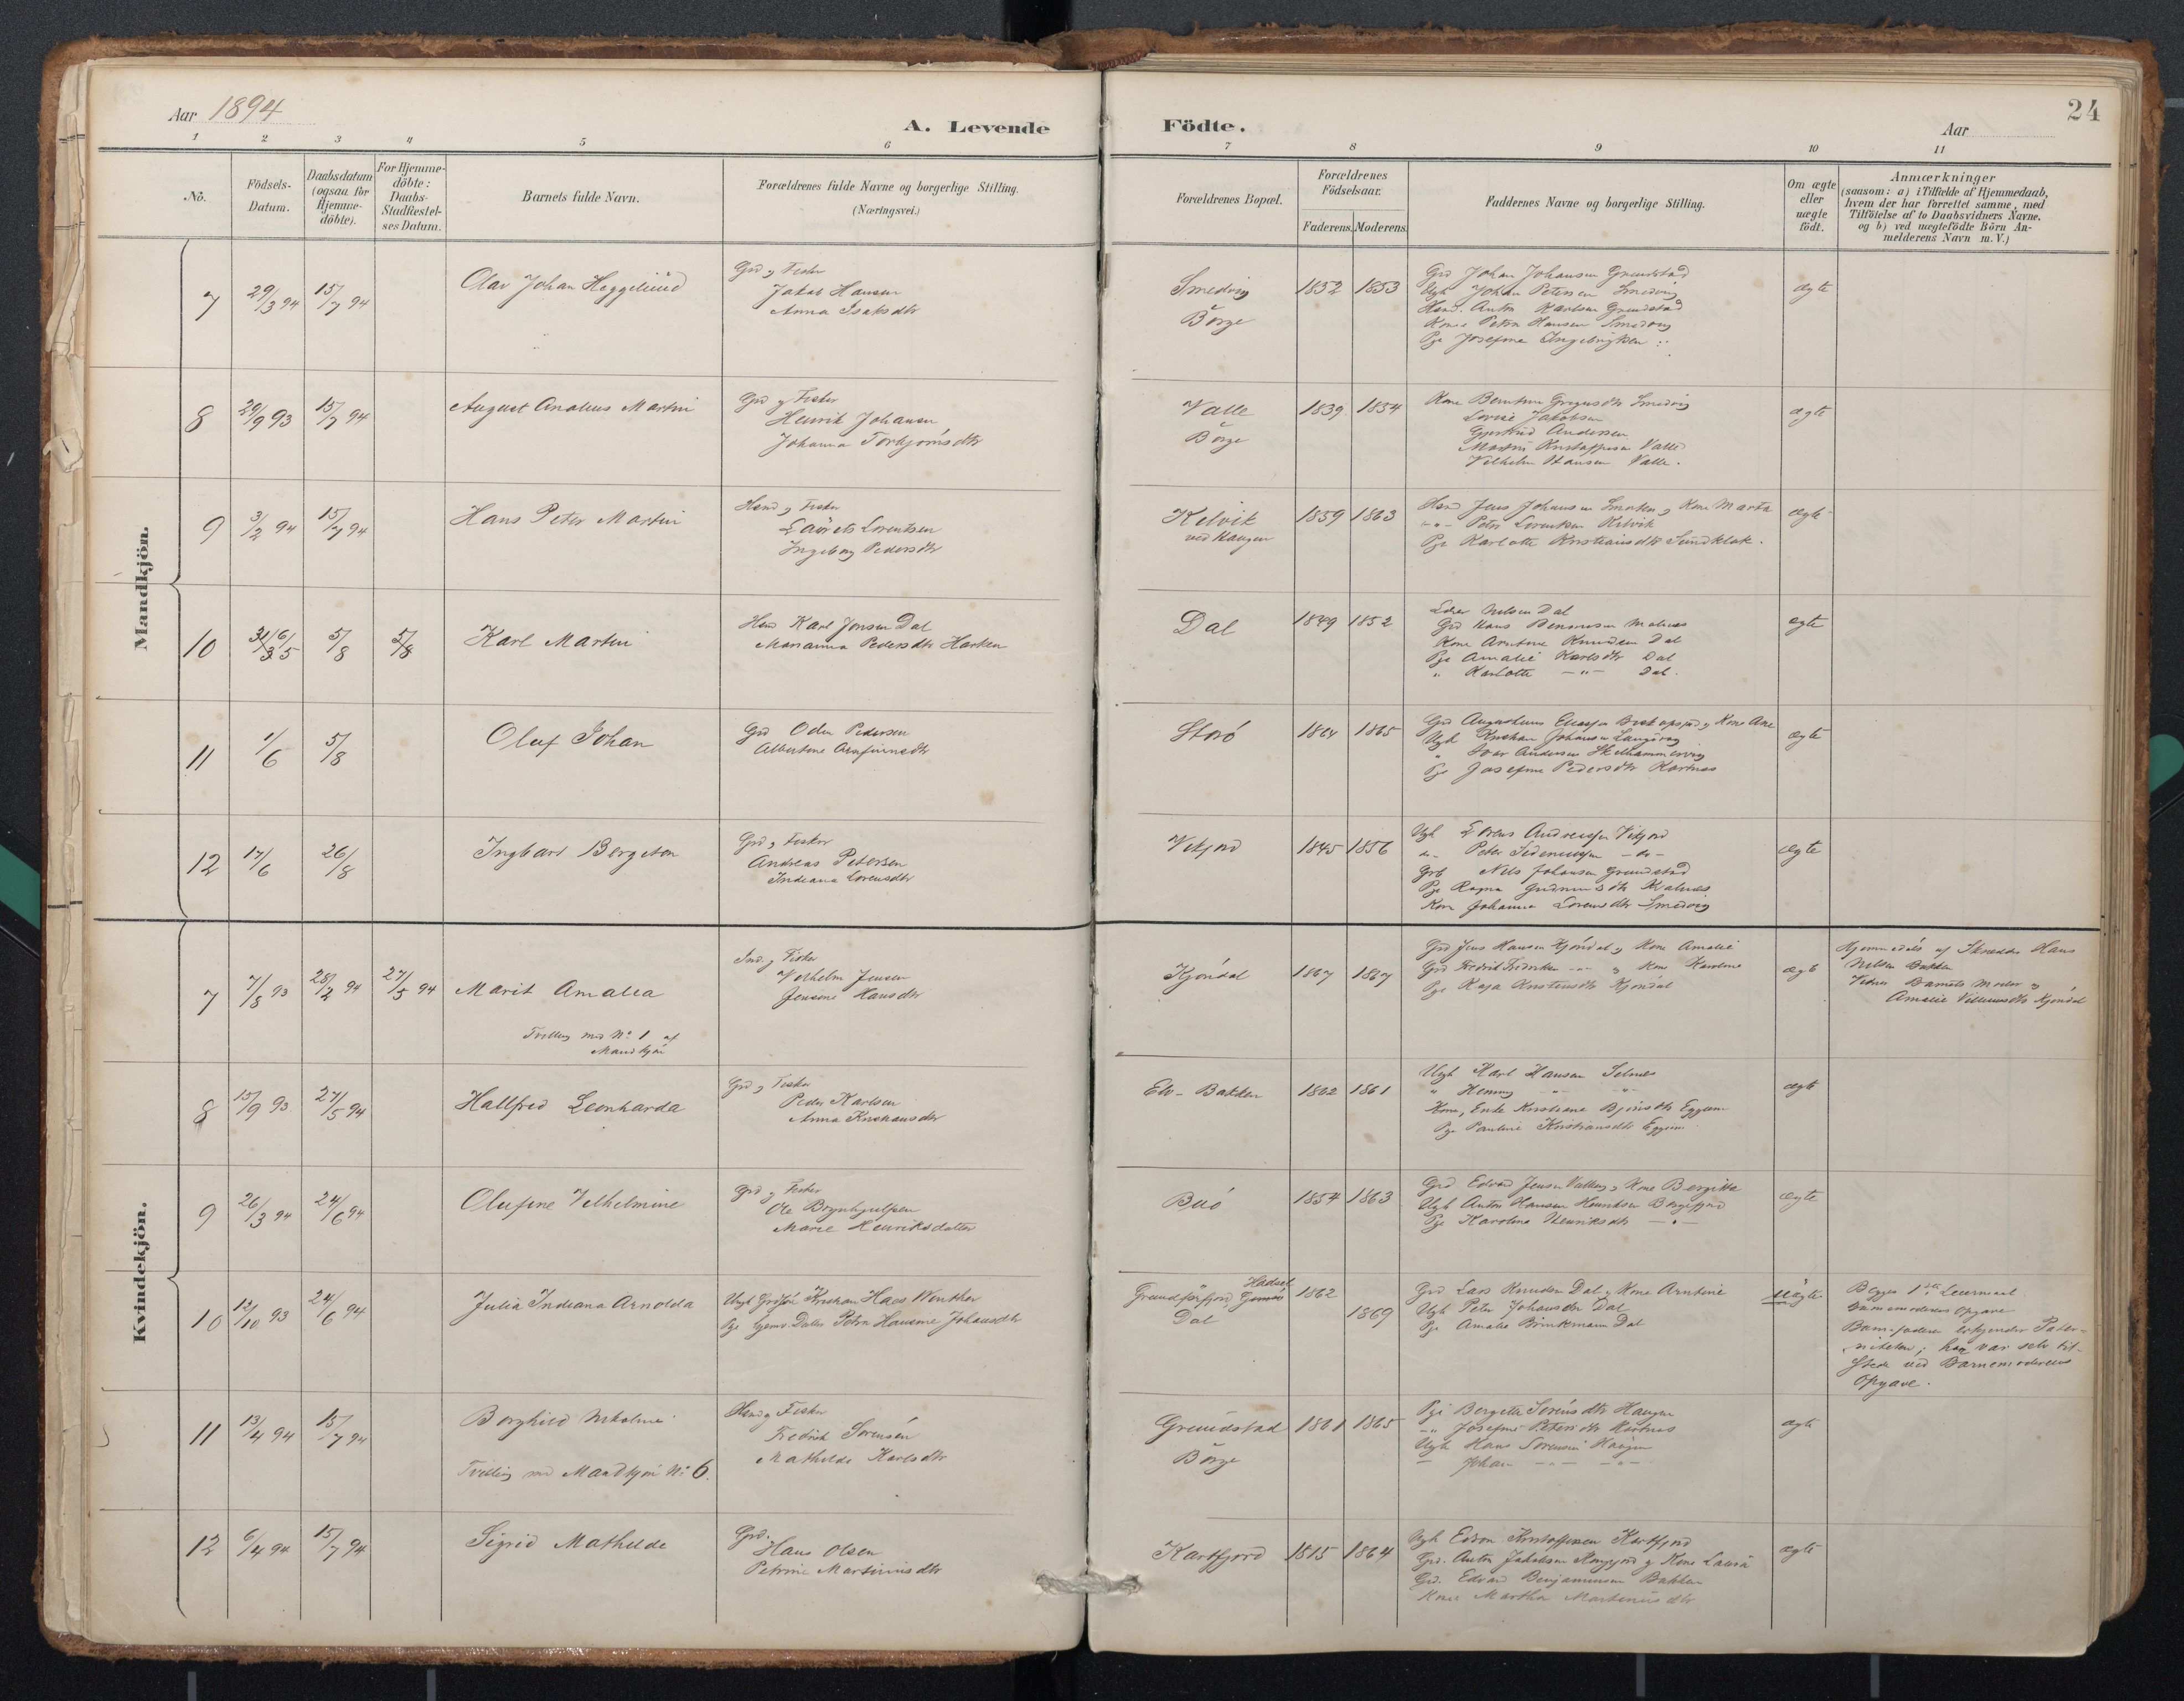 Aar 1894
A. Levende Födte.
Aar
24
1 2 3 4 5 6 7 8 9 10 11
No.
Födsels-Datum.
Daabsdatum (ogsaa for Hjemme-döbte).
For Hjemme-döbte: Daabs-Stadfæstel-ses Datum.
Barnets fulde Navn.
Forældrenes fulde Navne og borgerlige Stilling.
(Næringsvei.)
Forældrenes Bopæl.
Forældrenes Födselsaar.
Faderens. Moderens.
Faddernes Navne og borgerlige Stilling.
Om ægte eller uægte födt.
Anmærkninger
(saasom: a) i Tilfælde af Hjemmedaab,
hvem der har forrettet samme, med
Tilföielse af to Daabsvidners Navne,
og b) ved uægtefödte Börn An-
melderens Navn m. V.)
Mandkjön.
7 29/3 94 15/7 94 Olav Johan Heggelund
Grd og Fisker
Jakob Hansen
Anna Isaksdtr
Smedvig
Börge
1852 1853
Grd Johan Johansen Grundstad
Ugk Johan Petersen Smedvig
Husm. Anton Karlsen Grundstad
Kone Petra Hansen Smedvig
Pge Josefine Ingebrigtsen
ægte
8 29/9 93 15/7 94 August Analius Martin
Grd og Fisker
Henrik Johansen
Johanna Torbjørnsdtr
Valle
Börge
1839 1854
Kone Berntine Gregusdtr Smedvig
Lovise Jakobsen
Gjertrud Andersen
Martin Kristoffersen Valle
Vilhelm Hansen Valle.
ægte
9 3/2 94 15/7 94 Hans Peter Martin
Husm og Fisker
Laurets Lorentsen
Ingeborg Pedersdtr
Kelvik
ved Haugen
1859 1863
Husm Jens Johansen og Kone Marta
-"- Peter Lorentsen Kilvik
Pge Karlotte Kristiansdtr Sundklak.
ægte
10 5/8 5/8 Karl Martin
Husm Karl Jonsen Dal
Marianna Pedersdtr
Dal
1849 1852
Lærer Nilsen Dal
Grd Hans
Kone Arntine Knudsen Dal
Pge Amalie Karlsdtr Dal
" Karlotte -"- Dal.
ægte
11 1/6 5/8 Oluf Johan
Grd Odin Pedersen
Albertine Arnfinnsdtr
Storö
1864 1865
Grd og Kone Ane
Ugk Kristian Johansen
Andersen
Pge Josefine Pedersdtr
ægte
12 17/6 26/8 Ingbart Bergeton
Grd og Fisker
Andreas Petersen
Indiana Lorensdtr
Vikjord
1845 1856
Ugk Lorens Andreassen Vikjord
-"- Peter -"-
Grb Nils Johansen Grundstad
Pge Ragna
Kone Johanna Lorensdtr Smedvig
ægte
Kvindekjön.
7 7/8 93 28/2 94 27/5 94 Marit Amalia
Tvilling med No 1 af
Mandkjön
Ind. og Fisker
Vilhelm Jensen
Jensine Hansdtr
Kjöndal
1867 1867
Grd Jens Hansen Kjöndal og Kone Amalie
Grd Fredrik Fredriksen -"- og Kone Karoline
Pge Kaja Kristensdtr Kjöndal
ægte
Hjemmedöbt af Skrædder Hans
Nilsen Bakken
Vidner Barnets Moder og
Amalie Villumsdtr Kjöndal
8 15/9 93 27/5 94 Hallfred Leonharda
Grd og Fisker
Peder Karlsen
Anna Kristiansdtr
Elv-Bakken
1862 1861
Ugk Karl Hansen Selnes
" Henning -"- -"-
Kone, Enke Kristiane Eggum
Pge Pauline Kristiansdtr Eggum
ægte
9 26/3 94 24/6 94 Olufine Vilhelmine
Grd og Fisker
Ole Brynhjulfsen
Marie Henriksdatter
Buö
1854 1863
Grd Edvard Jensen og Kone Bergitta
Ugk Anton Hansen Henriksen Borgefjord
Pge Karoline Henriksdtr -"-
ægte
10 12/10 93 24/6 94 Julia Indiana Arnolda
Ugk Kristian Haes Winther
Pge Petra Hansine Johansdtr
Grundförfjord, Hadsel
Dal
1862
1869
Grd Lars Knudsen Dal og Kone Arntine
Ugk Peter Johansen Dal
Pge Amalie Brinkmann Dal
uægte
Begges 1ste Leiermaal
Barnemoderens Opgave
Barnefaderen erkjender Pater-
niteten; han var selv til-
Stede ved Barnemoderens
Opgave.
11 13/4 94 15/7 94 Borghild Nikoline
Tvilling med Mandkjön No 6.
Husm og Fisker
Fredrik Sørensen
Mathilde Karlsdtr
Grundstad
Börge
1861 1865
Pge Bergette Sörensdtr Haugen
-"- Josefine Petersdtr
Ugk Hans Sörensen Haugen
- Johan -"- -"-
ægte
12 6/4 94 15/7 94 Sigrid Mathilde
Grd.
Hans Olsen
Petrine Martinusdtr
Kartfjord
1815 1864
Ugk Edvon Kristoffersen Kartfjord
Grd. Anton Jakobsen og Kone Laura
Grd. Edvard Benjaminsen Bakken
Kone Martha Martinusdtr
ægte